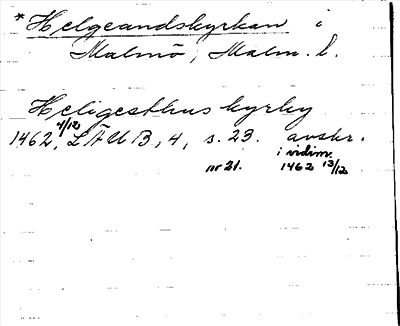 *Helgeandskyrkan i
Malmö, Malm. l.
Heligesthus kyrky
1462 4/12, LÄUB, 4, s. 23. avskr.
i vidim.
nr 21. 1462 13/12